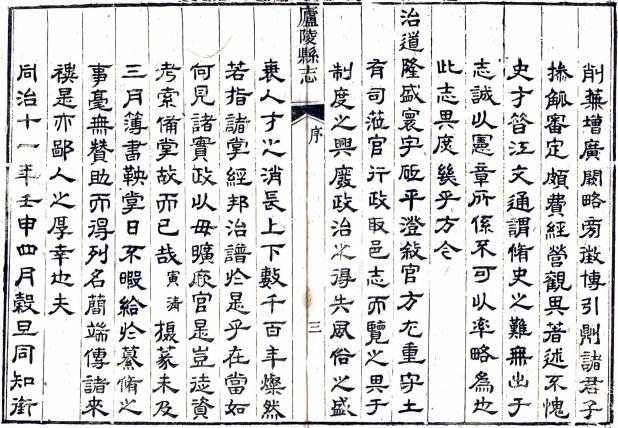 削藁增廣闕略旁徵博引鼎諸君子
操觚審定頗費經營觀其著述不愧
史才昔江文通謂脩史之難無出于
志誠以憲章所係不可以率略為也
此志其庶幾乎方今
治道隆盛寰宇砥平澄敘官方尤重守土
有司蒞官行政取邑志而覽之其于
制度之興廢政治之得失風俗之盛
廬陵縣志
序
三
衰人才之消長上下數千百年燦然
若指諸掌經邦治譜於是乎在當如
何見諸實政以毋曠厥官是豈徒資
考索備掌故而已哉寅濟攝篆未及
三月簿書鞅掌日不暇給於纂脩之
事毫無贊助而得列名簡端傳諸來
禩是亦鄙人之厚幸也夫
同治十一年壬申四月穀旦同知銜